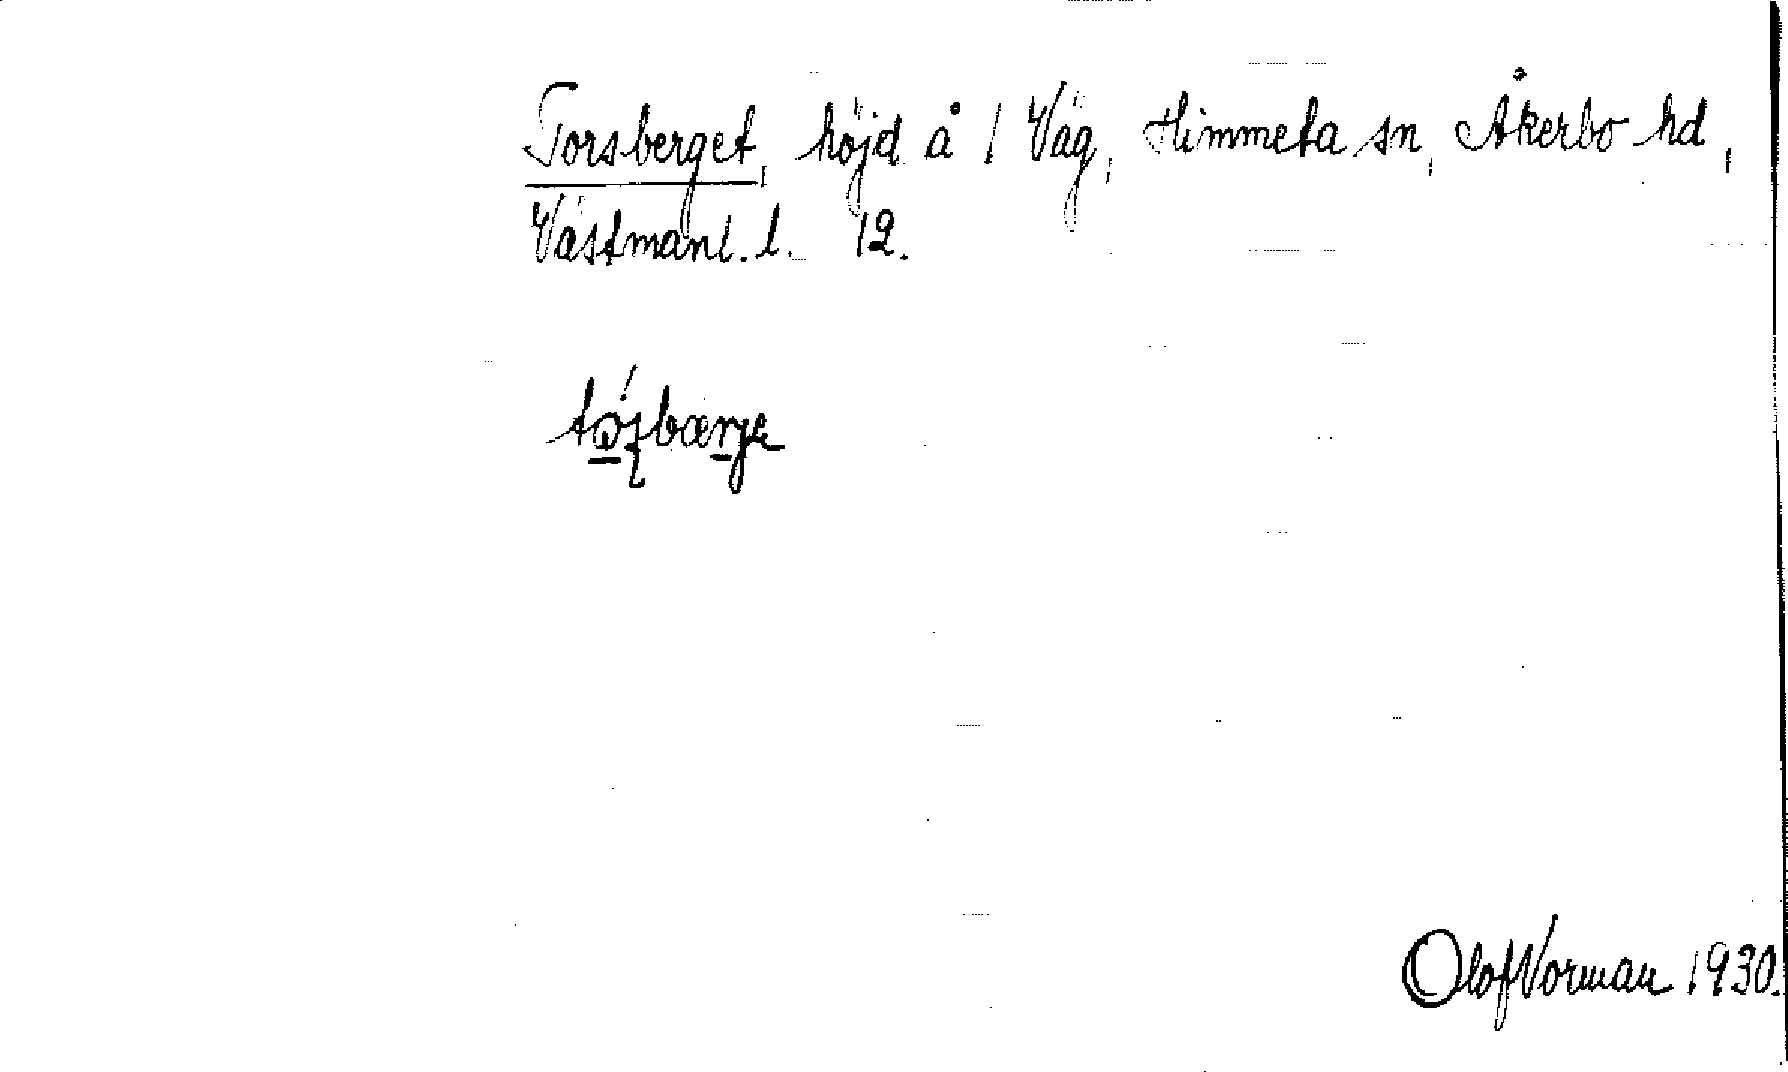 Torsberget, höjd å 1 Väg, Himmeta sn, Åkerbo hd,
Västmanl. l. 12.
Olof Norman 1930.